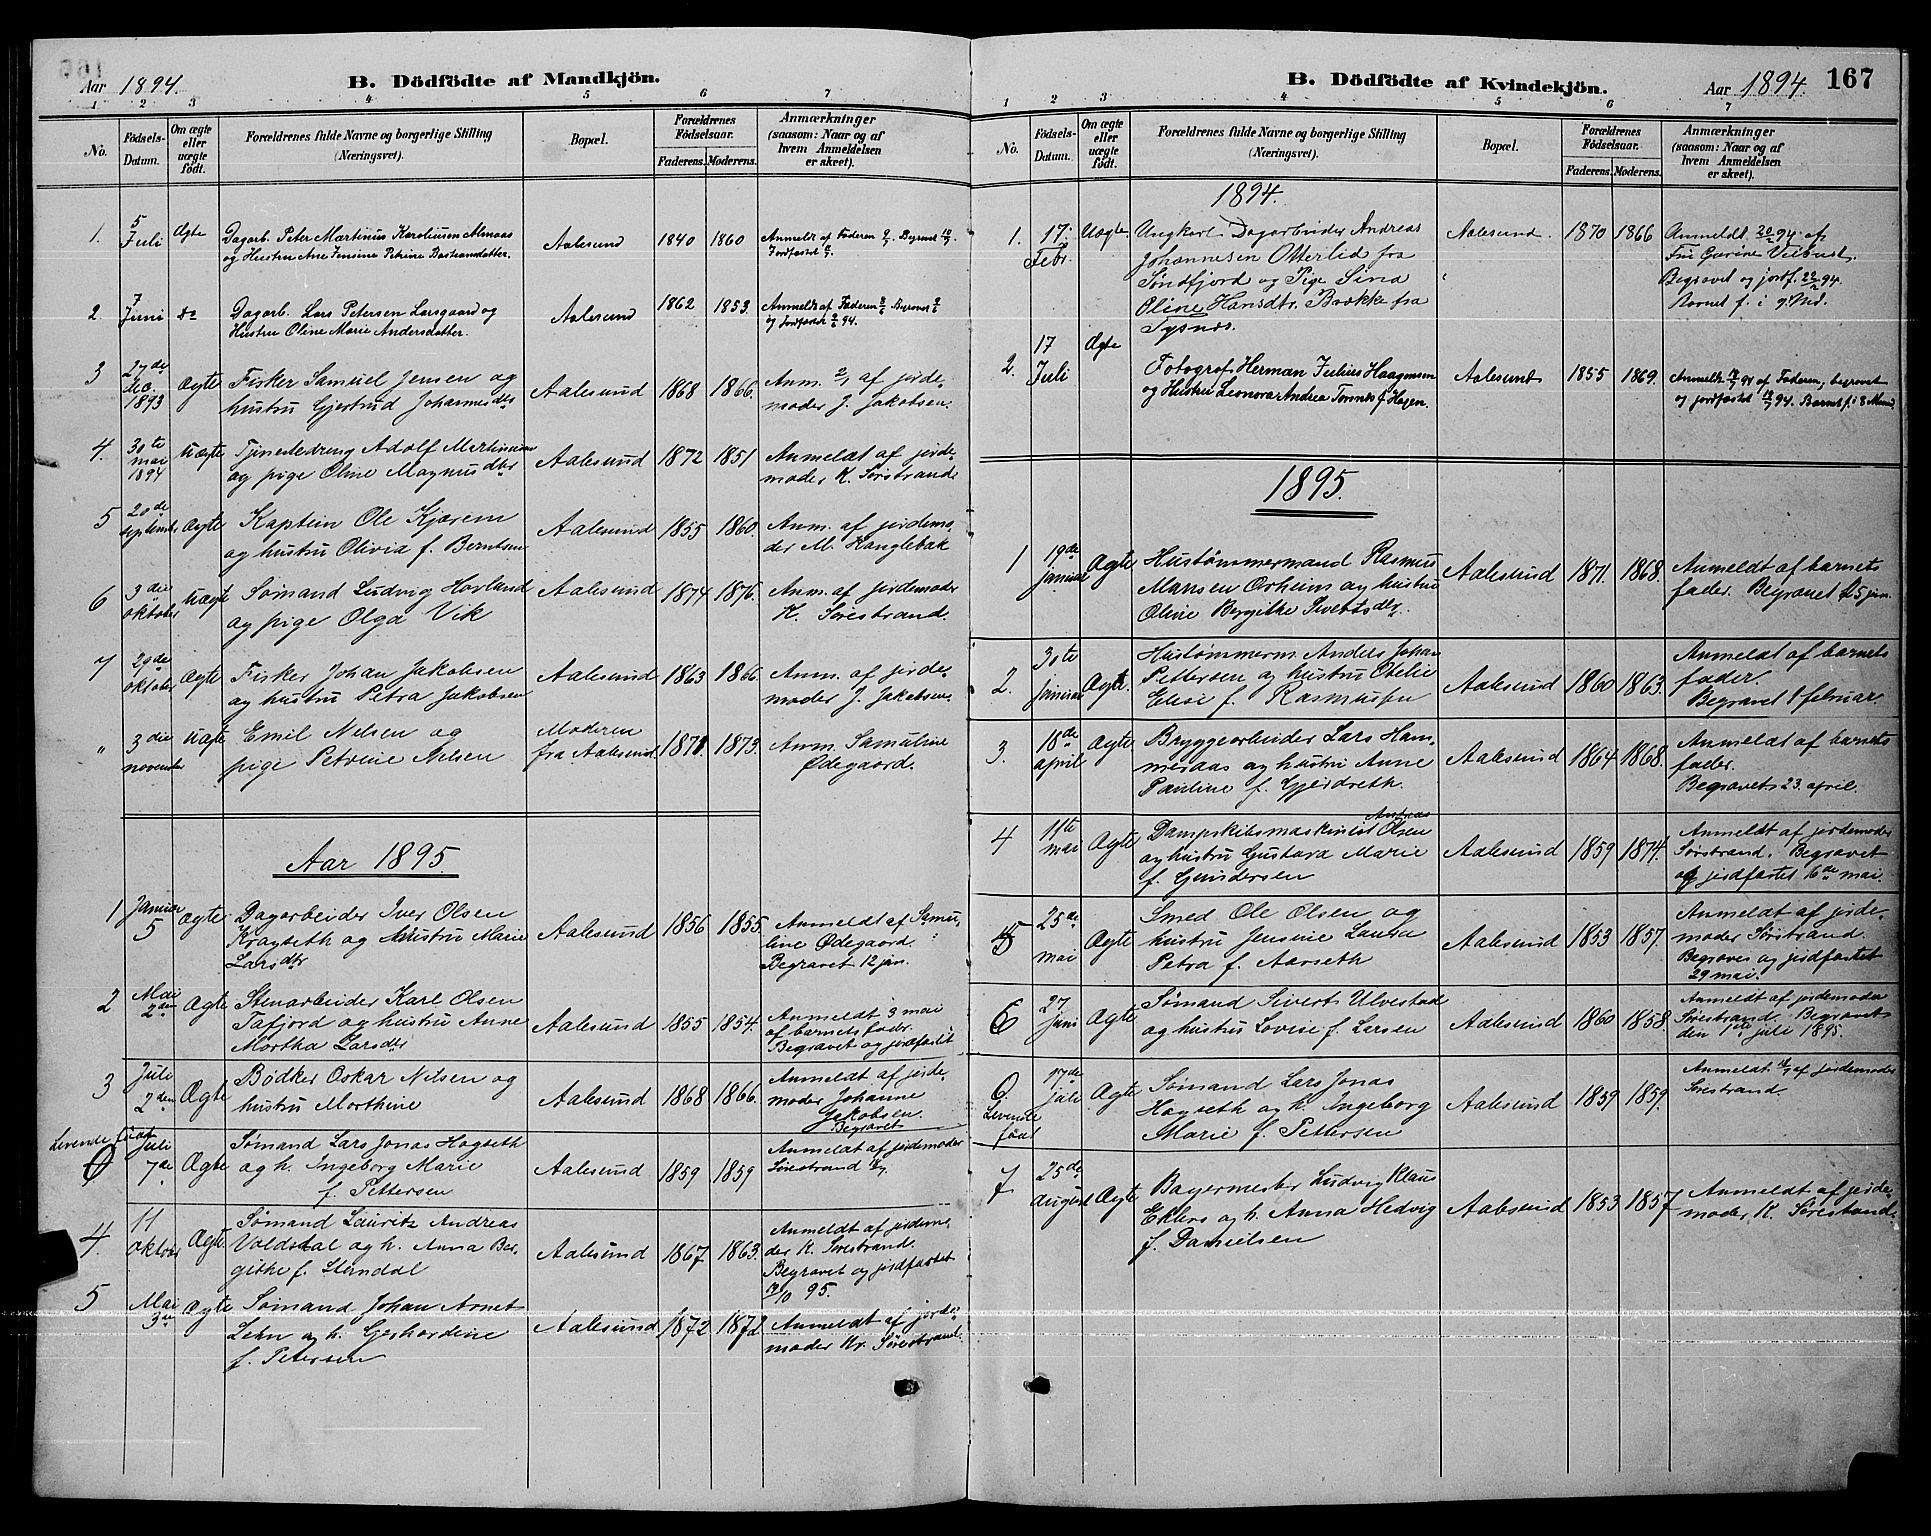 Aar 1894.
B. Dödfödte af Mandkjön.
1 2 3 4 5 6 7
No.
Födsels-
Datum.
Om ægte
eller
uægte
födt.
Forældrenes fulde Navne og borgerlige Stilling
(Næringsvei).
Bopæl.
Forældrenes
Födselsaar.
Faderens. Moderens.
Anmærkninger
(saasom: Naar og af
hvem Anmeldelsen
er skeet).
1. 5 Juli Ægte
Dagarb. Peter Martinus Karoliussen Alnaas
og Hustru Ane Jensine Petrine Bastiansdatter.
Aalesund 1840 1860
Anmeldt af Faderen Begravet
Jordfæstet
2. 7 Juni do
Dagarb. Lars Petersen Larsgaard og
Hustru Oline Marie Andersdatter.
Aalesund 1862 1853.
Anmeldt af Faderen Begravet
og Jordfæstet 94.
3 27de dec. 1893 Ægte
Fisker Samuel Jensen og
hustru Gjertrud Johannesdtr
Aalesund 1868 1866.
Anm. 2/1 af jorde-
moder J. Jakobsen.
4. 30te mai 1894 Uægte
Tjenestedreng Adolf Martinusen
og pige Oline Magnusdtr
Aalesund 1872 1851
Anmeldt af jorde-
moder K. Sørestrand
5 20de septemb. Ægte
Kaptein Ole Kjærem
og hustru Olivia f. Berntsen
Aalesund 1855 1860.
Anm. af jordemo-
der M. Hanglebak
6 3die oktober Uægte
Sømand Ludvig Hovland
og pige Olga Vik
Aalesund 1874 1876.
Anm. af jordemoder
K. Sørestrand.
7 29de oktober Ægte
Fisker Johan Jakobsen
og hustru Petra Jakobsen
Aalesund 1863 1866
Anm. af jorde-
moder J. Jakobsen.
" 3die november Uægte
Emil Nilsen og
pige Petrine Nilsen
Moderen
fra Aalesund. 1871. 1873.
Anm. Samuline
Ødegaard.
Aar 1895.
1 Januar 5 Ægte
Dagarbeider Iver Olsen
Kragseth og hustru Marie
Larsdtr
Aalesund 1856 1855.
Anmeldt af Samu-
line Ødegaard.
Begravet 12 jan.
2 Mai 2den Ægte
Stenarbeider Karl Olsen
Tafjord og hustru Anne
Martha Larsdtr
Aalesund 1855 1854.
Anmeldt 3 mai
af barnets fader.
Begravet og jordfæstet
3 Juli 2den Ægte
Bødker Oskar Nilsen og
hustru Marthine
Aalesund 1868 1866.
Anmeldt af jorde-
moder Johanne
Jakobsen.
Begravet
Levende født
0 Juli 7de Ægte
Sømand Lars Jonas Hogseth
og h. Ingeborg Marie
f. Pettersen
Aalesund 1859 1859
Anmeldt af jordemoder
Sørestrand
4. 11 oktober Ægte
Sømand Lauritz Andreas
Voldsdal og h. Anna Ber-
githe f. Stendal
Aalesund 1867 1863.
Anmeldt af jordemo-
der K. Sørestrand.
Begravet og jordfæstet
95.
5 Mai 3die Ægte
Sømand Johan Arnet
Lehn og h. Gerhardine
f. Petersen
Aalesund 1872 1872
Anmeldt af jorde-
moder Kr. Sørestrand.
B. Dödfödte af Kvindekjön.
Aar 1894. 167
1 2 3 4 5 6 7
No.
Födsels-
Datum.
Om ægte
eller
uægte
födt.
Forældrenes fulde Navne og borgerlige Stilling
(Næringsvei).
Bopæl.
Forældrenes
Födselsaar.
Faderens. Moderens.
Anmærkninger
(saasom: Naar og af
hvem Anmeldelsen
er skeet).
1894.
1. 17. Febr. Uægte.
Ungkarl Dagarbeider Andreas
Johannesen Otterlid fra
Søndfjord og Pige Sina
Oline Hansdtr. Brække fra
Tysnæs.
Aalesund. 1870 1866
Anmeldt 20/2 94 af
Fru Gurine Veibust.
Begravet og jordf. 22/2 94.
Barnet f. i 9. Md.
2. 17 Juli Ægte
Fotograf Herman Julius Haagensen
og Hustru Leonora Andrea Tonnes f. Hagen.
Aalesund 1855 1869.
Anmeldt 94 af Faderen, begravet
og jordfæstet 94. Barnet f. i 8 Maaned.
1895.
1 19de januar Ægte
Hustømmermand Rasmus
Mansen Orheim og hustru
Oline Bergitte Sivertsdtr.
Aalesund 1871. 1868.
Anmeldt af barnets
fader. Begravet 25 jan.
2. 30te januar Ægte.
Hustømmerm. Anders Johan
Pettersen og hustru Otelie
Elise f. Rasmussen
Aalesund 1860 1863.
Anmeldt af barnets
fader.
Begravet 1 februar.
3. 18de april Ægte
Bryggearbeider Lars Ham-
meraas og hustru Anne
Pauline f. Gjerdreth.
Aalesund 1864 1868.
Anmeldt af barnets
fader.
Begravet 23. april.
4 11te mai Ægte
Andreas
Dampskibsmaskinist Olsen
og hustru Gustava Marie
f. Gundersen
Aalesund 1859 1874.
Anmeldt af jordemoder
Sørstrand. Begravet
og jordfæstet 16de mai.
5 25de mai Ægte
Smed Ole Olsen og
hustru Jensine Laura
Petra f. Aarseth
Aalesund 1853 1857.
Anmeldt af jorde-
moder Sørstrand.
Begraves og jordfæstet
29 mai.
6 27 juni Ægte
Sømand Sivert Ulvestad
og hustru Lovise f. Larsen
Aalesund 1860 1858.
Anmeldt af jordemoder
Sørestrand. Begravet
den 1ste juli 1895.
0. Levende født 17de juli Ægte
Sømand Lars Jonas
Hogseth og h. Ingeborg
Marie f. Pettersen
Aalesund 1859 1859.
Anmeldt af jordemoder
Sørestrand.
7 25de august Ægte
Bagermester Ludvig Klaus
Ehlers og h. Anna Hedvig
f. Danielsen
Aalesund 1853 1857
Anmeldt af jorde-
moder K. Sørestrand.